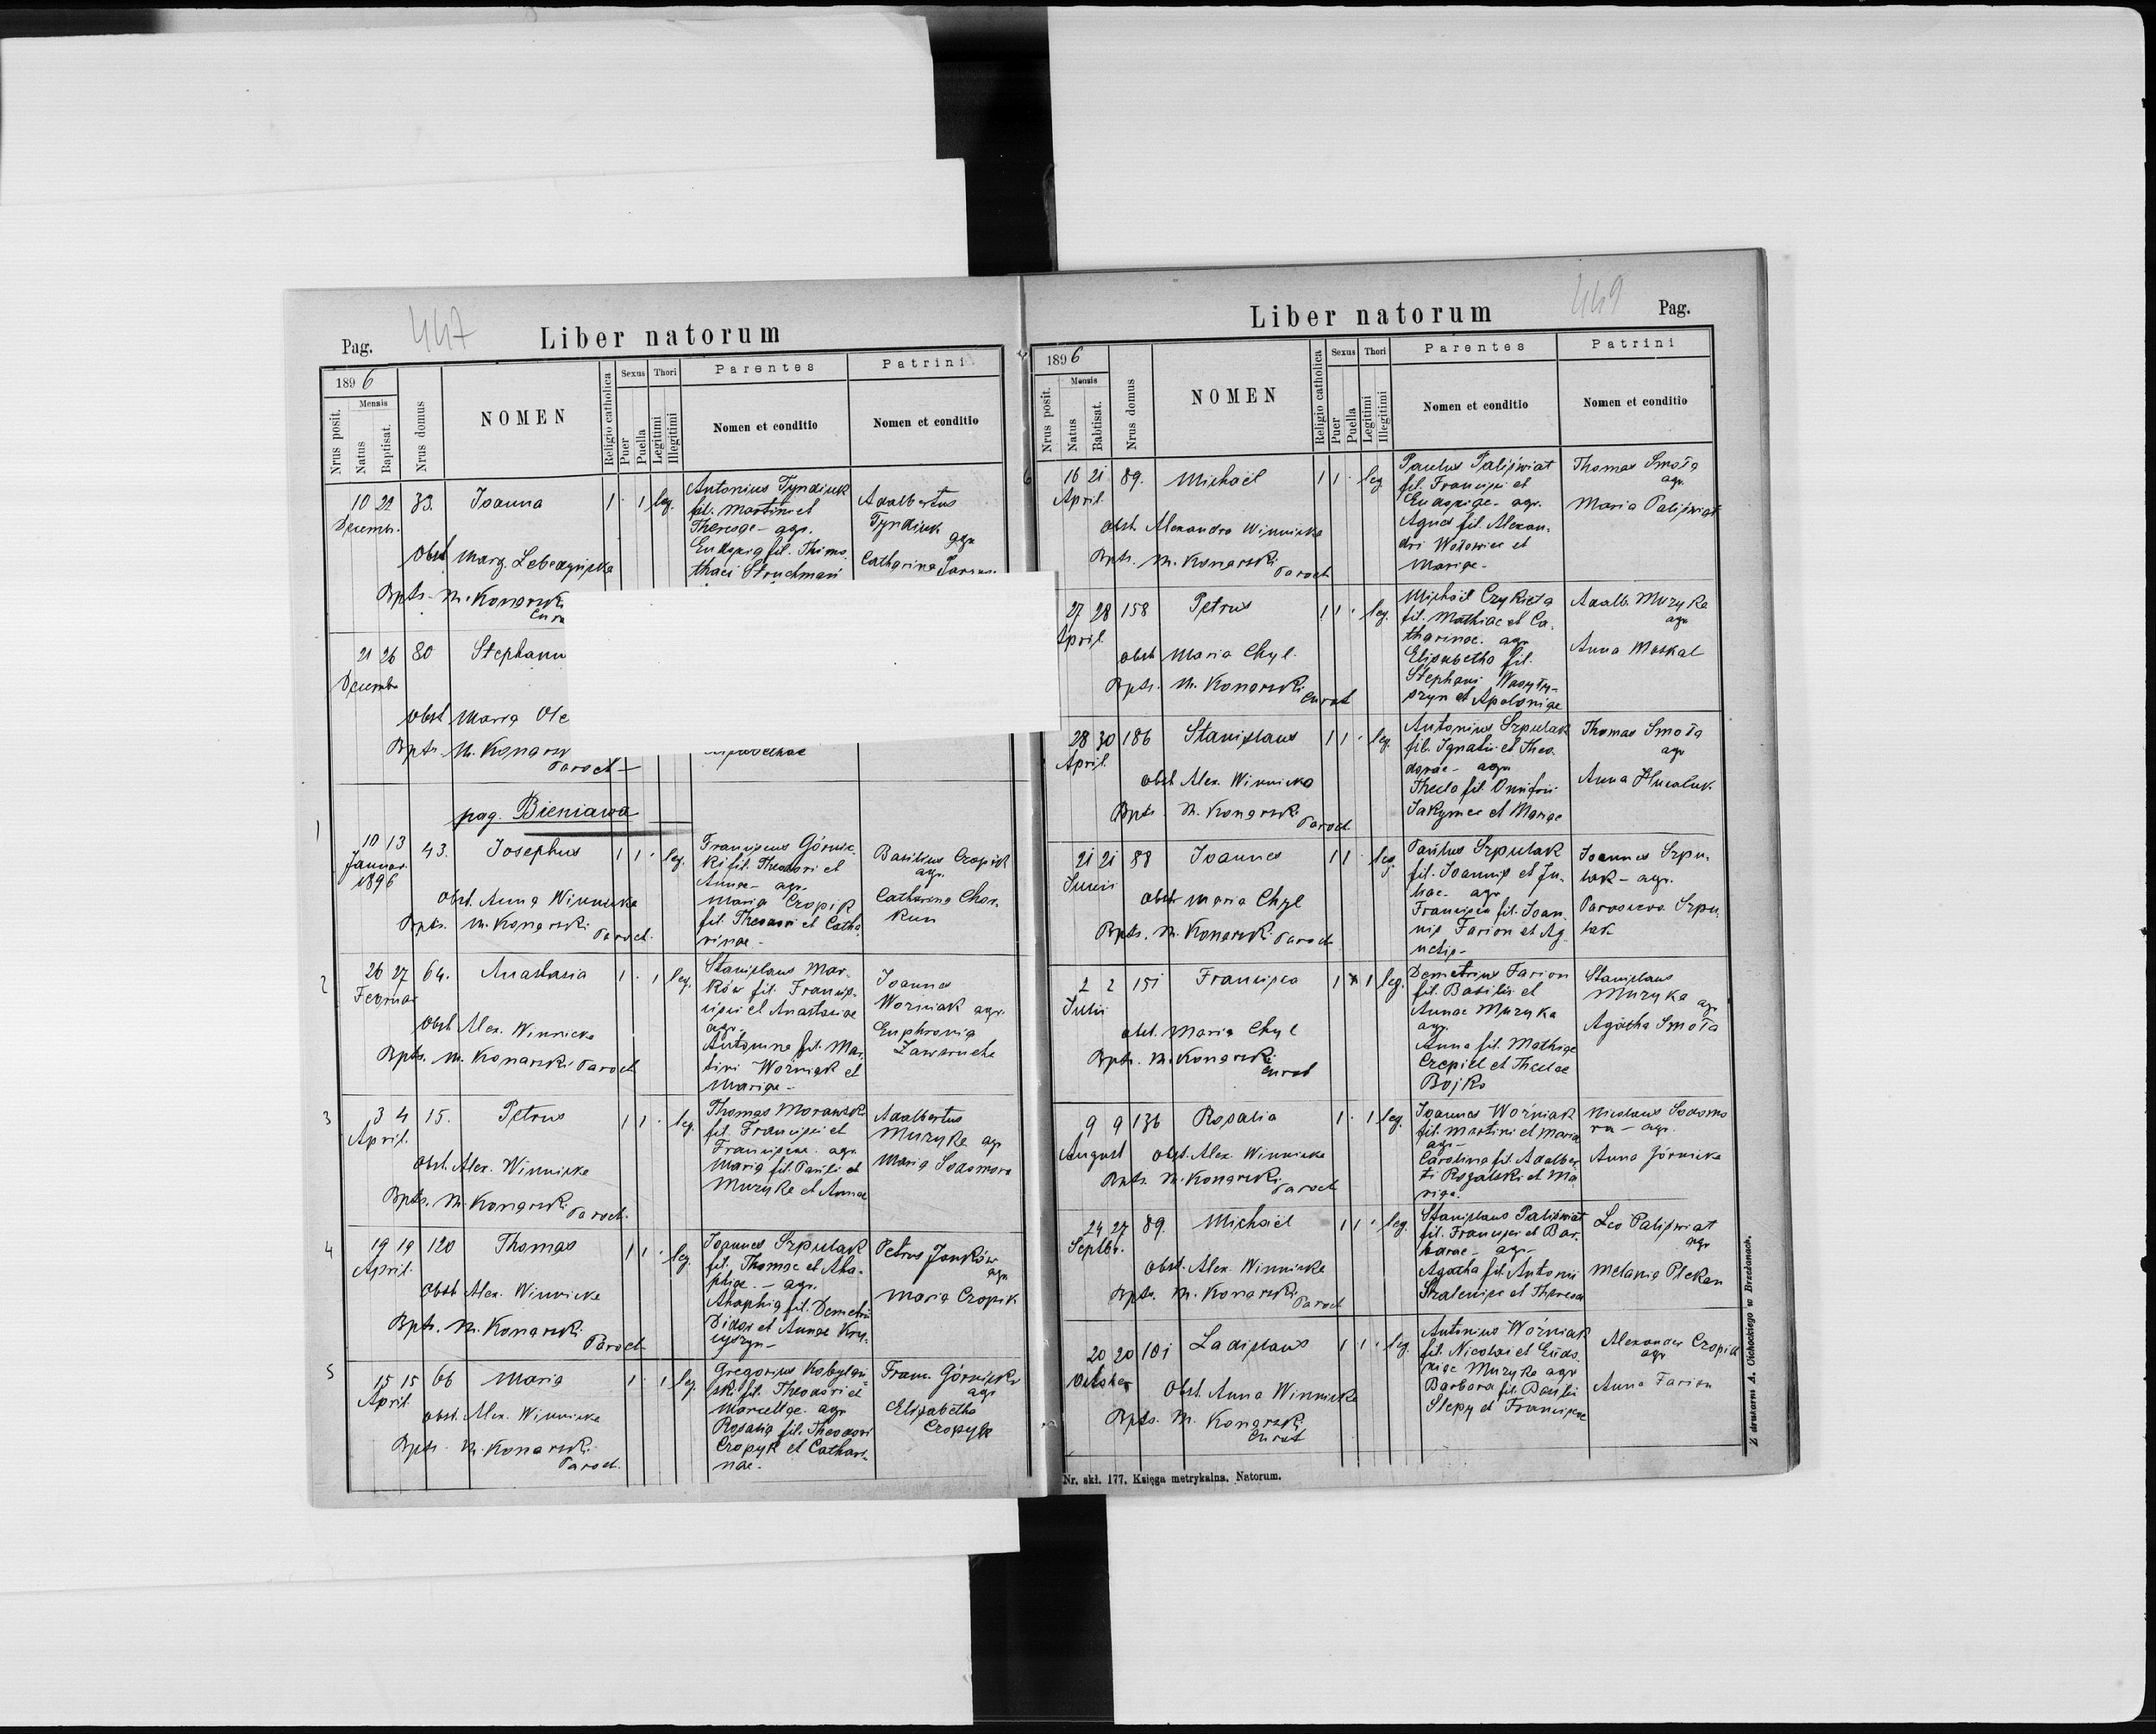 Pag.
447
Liber natorum
1896
Nrus posit.
Mensis
Natus
Baptisat.
Nrus domus
NOMEN
Religio catholica
Sexus
Puer
Puella
Thori
Legitimi
Illegitimi
Parentes
Nomen et conditio
Patrini
Nomen et conditio
10 22 33. Joanna 1 · 1 leg.
Decembr.
Obst Marg.
Bpts. M. Konarski
Antonius Tyndiuk
fil. Martini et
Theresae - agr.
Eudoxia fil. Thimo
thaei Struchman
Adalbertus
Tyndiuk
agr
Catharina
21 26 80
Decembr
Obst Maria
Bpts. M. Konarsk
Paroch
pag. Bieniawa
1
10 13 43. Josephus 1 1 · leg.
Januar.
1896
Obst. Anna Winnicka
Bpts. M. Konarski Paroch.
Franciscus Górnic
ki fil. Theodori et
Annae - agr.
Maria Cropik
fil. Theodori et Catha
rinae -
Basilius Cropik
agr.
Catharina Chor
kun
2
26 27 64. Anastasia 1 · 1 leg.
Februar
Obst Alex. Winnicka
Bpts. M. Konarski Paroch
Stanislaus Mar
ków fil. Francis
cisci et Anastasiae
agr.
Antonina fil. Mar
tini Woźniak et
Mariae -
Joannes
Woźniak agr.
Euphrosia
3
3 4 15. Petrus 1 1 · leg.
April.
Obst. Alex. Winnicka
Bpts. M. Konarski Paroch.
Thomas Morawski
fil. Francisci et
Franciscae. agr
Maria fil. Pauli et
Muzyka et Annae
Adalbertus
Muzyka agr
Maria Sodomora
4
19 19 120 Thomas 1 1 · leg.
April.
Obst Alex. Winnicka
Bpts. M. Konarski
Paroch
Joannes Szpulak
fil. Thomae et Aha
phiae. - agr.
Ahaphia fil. Demetrii
et Annae
Petrus Janków
agr
Maria Cropik
5
15 15 66 Maria 1 · 1 leg.
April
obst. Alex. Winnicka
Bpts. M. Konarski
Paroch.
Gregorius Kobylań
ski fil. Theodori et
Marcellae. agr
Rosalia fil. Theodori
Cropyk et Cathari
nae.
Franc. Górnicki
agr
Elisabetha
Cropyk
Liber natorum
449
Pag.
1896
Nrus posit.
Mensis
Natus
Babtisat.
Nrus domus
NOMEN
Religio catholica
Sexus
Puer
Puella
Thori
Legitimi
Illegitimi
Parentes
Nomen et conditio
Patrini
Nomen et conditio
6
16 21 89. Michaël 1 1 · leg
April.
Obst. Alexandra Winnicka
Bpts. M. Konarski
Paroch
Paulus Paliświat
fil. Francisci et
Eudoxiae - agr.
Agnes fil. Alexan
dri Wołowiec et
Mariae -
Thomas Smoła
agr.
Maria Paliświat
27 28 158 Petrus 1 1 · leg.
April.
obst Maria Chyl.
Bpts. M. Konarski
Curat
Michaël Czykieta
fil. Mathiae et Ca
tharinae. agr
Elisabetha fil.
Stephani Wasyły
szyn et Apoloniae
Adalb. Muzyka
agr
Anna Moskal
28 30 186 Stanislaus 1 1 · leg.
April.
Obst Alex. Winnicka
Bpts. M. Konarski Paroch
Antonius Szpulak
fil. Ignatii et Theo
dorae - agr
Thecla fil Onufrii
Jakymec et Mariae
Thomas Smoła
agr
Anna Hucaluk
21 21 88 Joannes 1 1 leg
Junii
Obst Maria Chyl
Bpts. M. Konarski Paroch
Paulus Szpulak
fil. Joannis et Ju
liae - agr
Francisca fil. Joan
nis Farion et Ag
netis -
Joannes Szpu
lak - agr.
Szpu
lak
2 2 151 Francisca 1 1 leg.
Julii
obst. Maria Chyl
Bpts. M. Konarski
Curat
Demetrius Farion
fil. Basilii et
Annae Muzyka
agr.
Anna fil. Mathiae
et Theclae
Bojko
Stanislaus
Muzyka agr
Agatha Smoła
9 9 136 Rosalia 1 · 1 leg.
August
obst. Alex. Winnicka
Bpts. M. Konarski
Paroch
Joannes Woźniak
fil. Martini et Maria
agr -
Carolina fil. Adalber
ti Rogalski et Ma
riae.
Nicolaus Sodomo
ra - agr.
Anna Górnicka
24 27 89. Michaël 1 1 · leg.
Septbr.
Obst. Alex. Winnicka
Bpts. M. Konarski
Paroch
Stanislaus Paliświat
fil. Francisci et Bar
barae - agr -
Agatha fil Antonii
et Theresae
Leo Paliświat
agr
Melania Plekan
20 20 101 Ladislaus 1 1 · leg.
October
Obst. Anna Winnicka
Bpts. M. Konarski
Curat
Antonius Woźniak
fil. Nicolai et Eudo
xiae Muzyka agr
Barbara fil. Basilii
Slepy et Franciscae
Alexander Cropik
agr
Anna Farion
Nr. skł. 177. Księga metrykalna. Natorum.
Z drukarni A. Cichockiego w Brzeżanach.